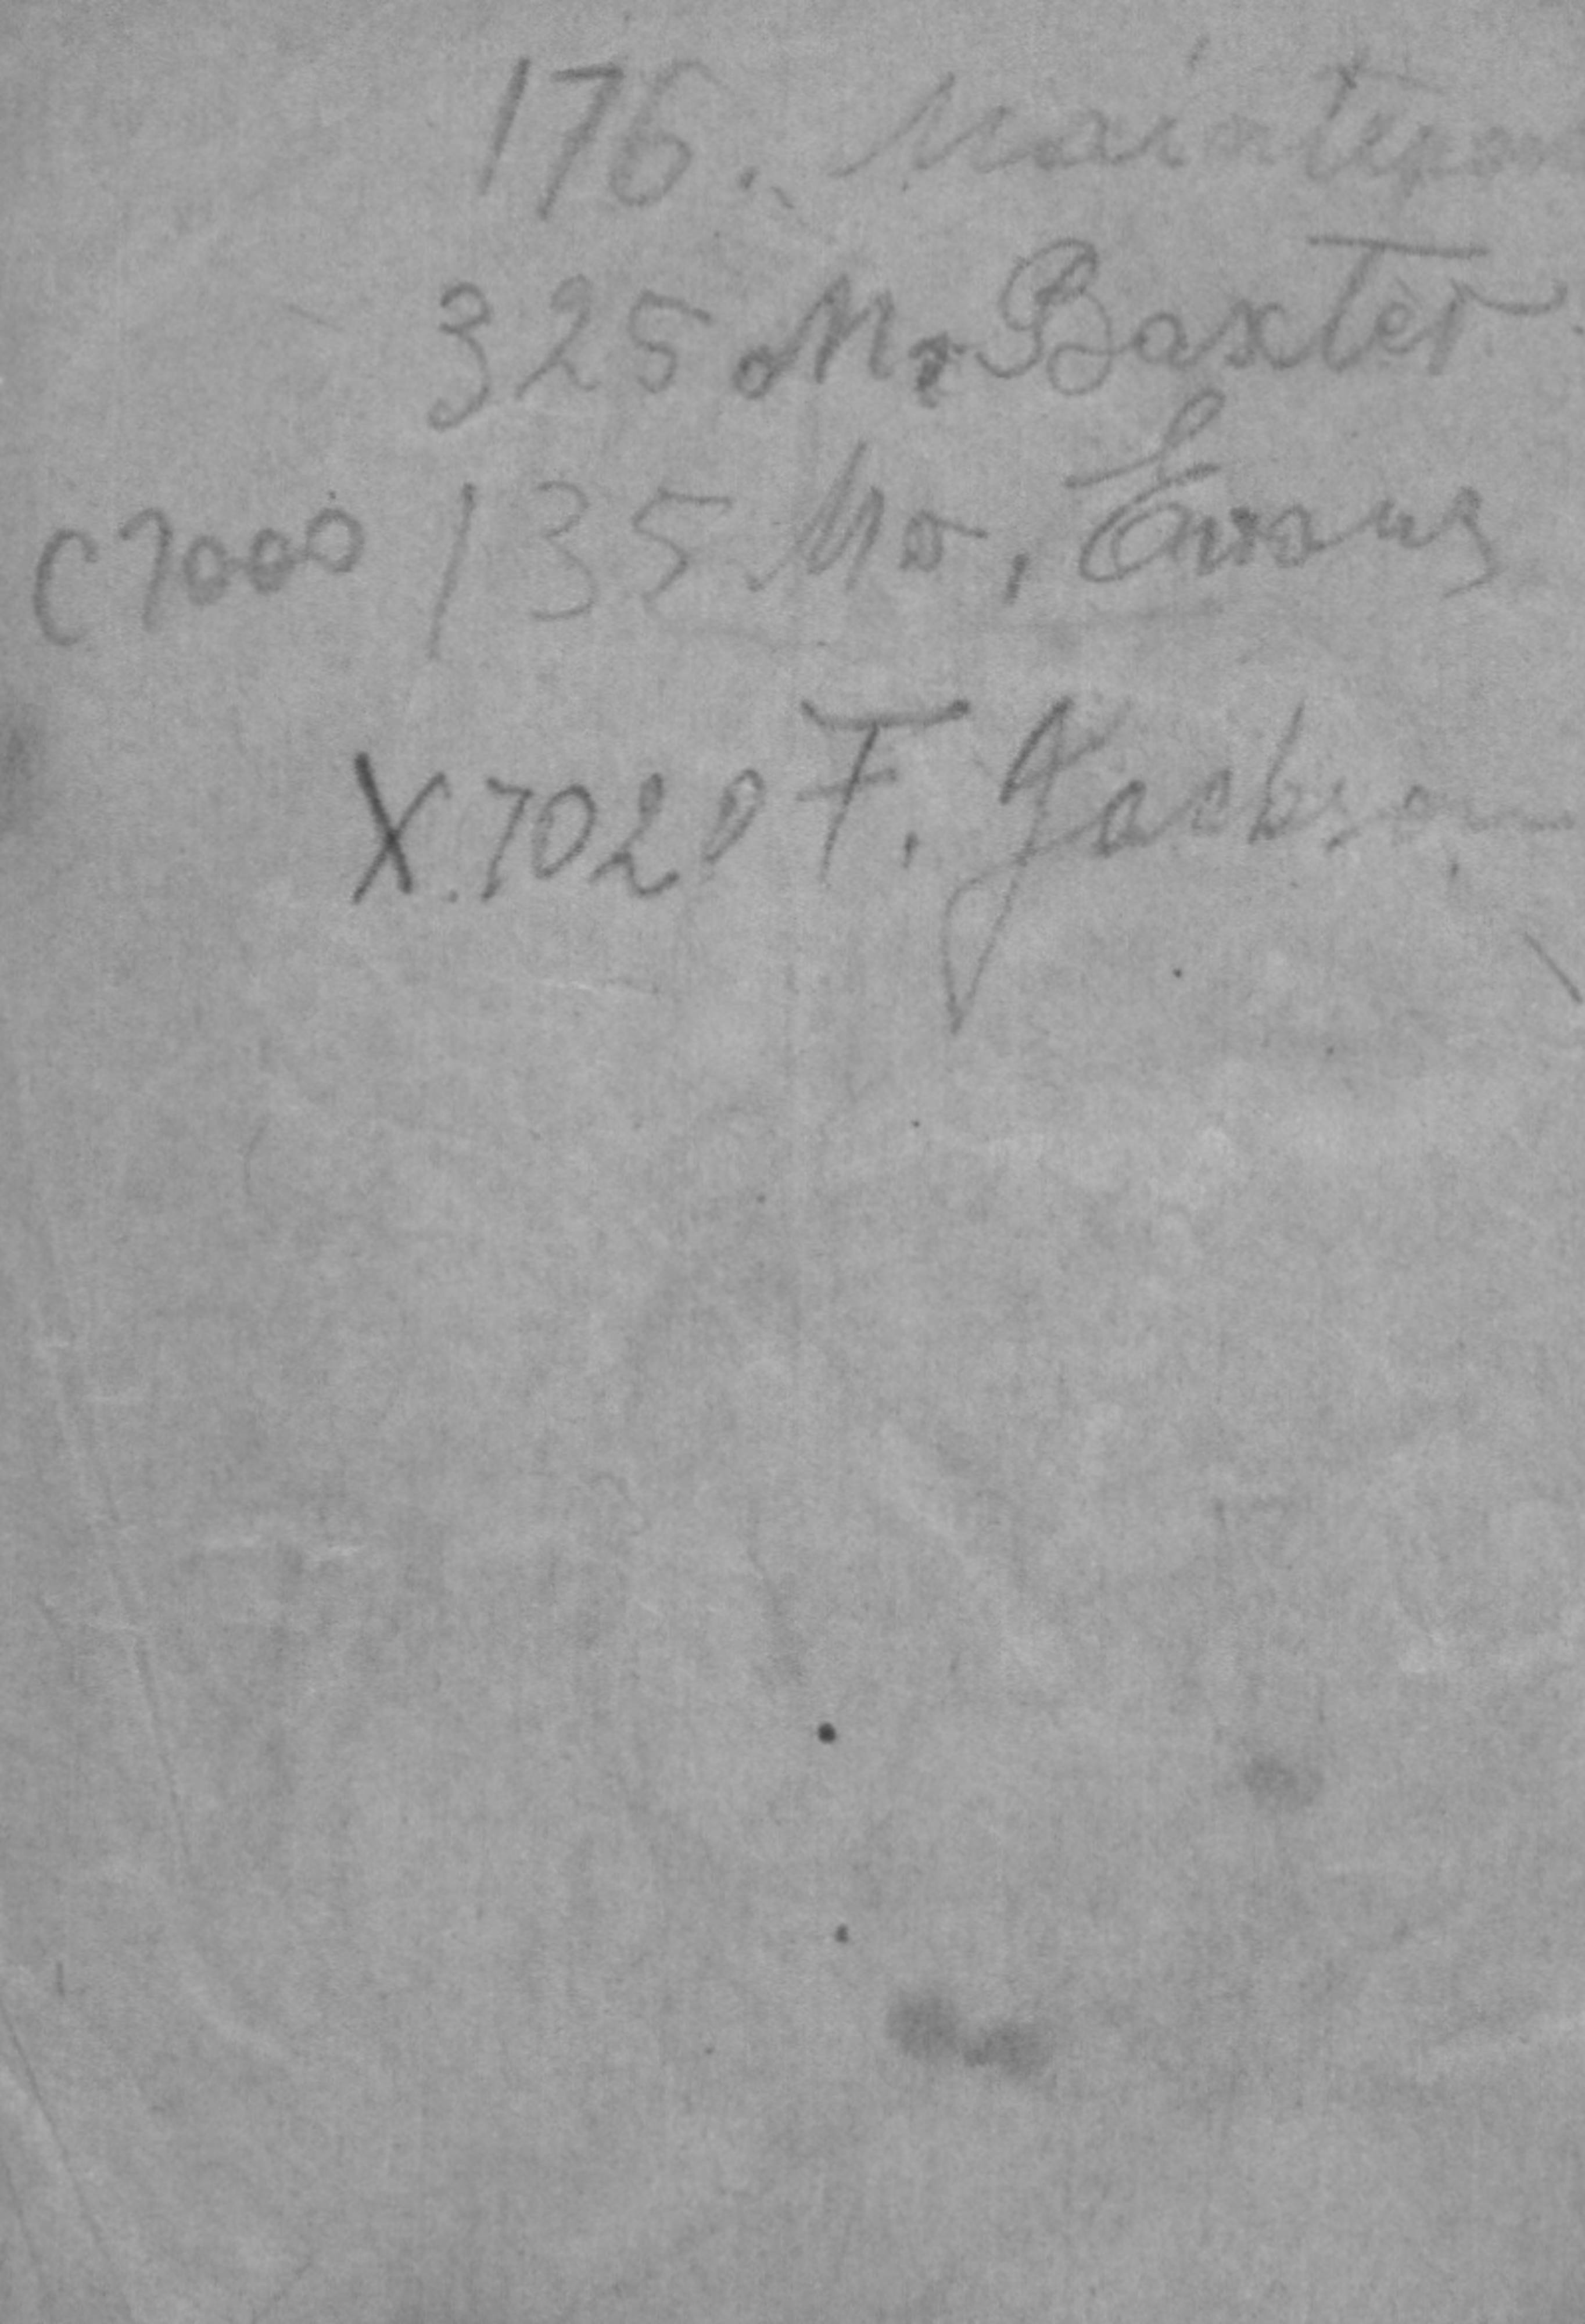 176.
325 Mr Baxter
C7000 135 Mr, Evans
X.7020 F. Jackson